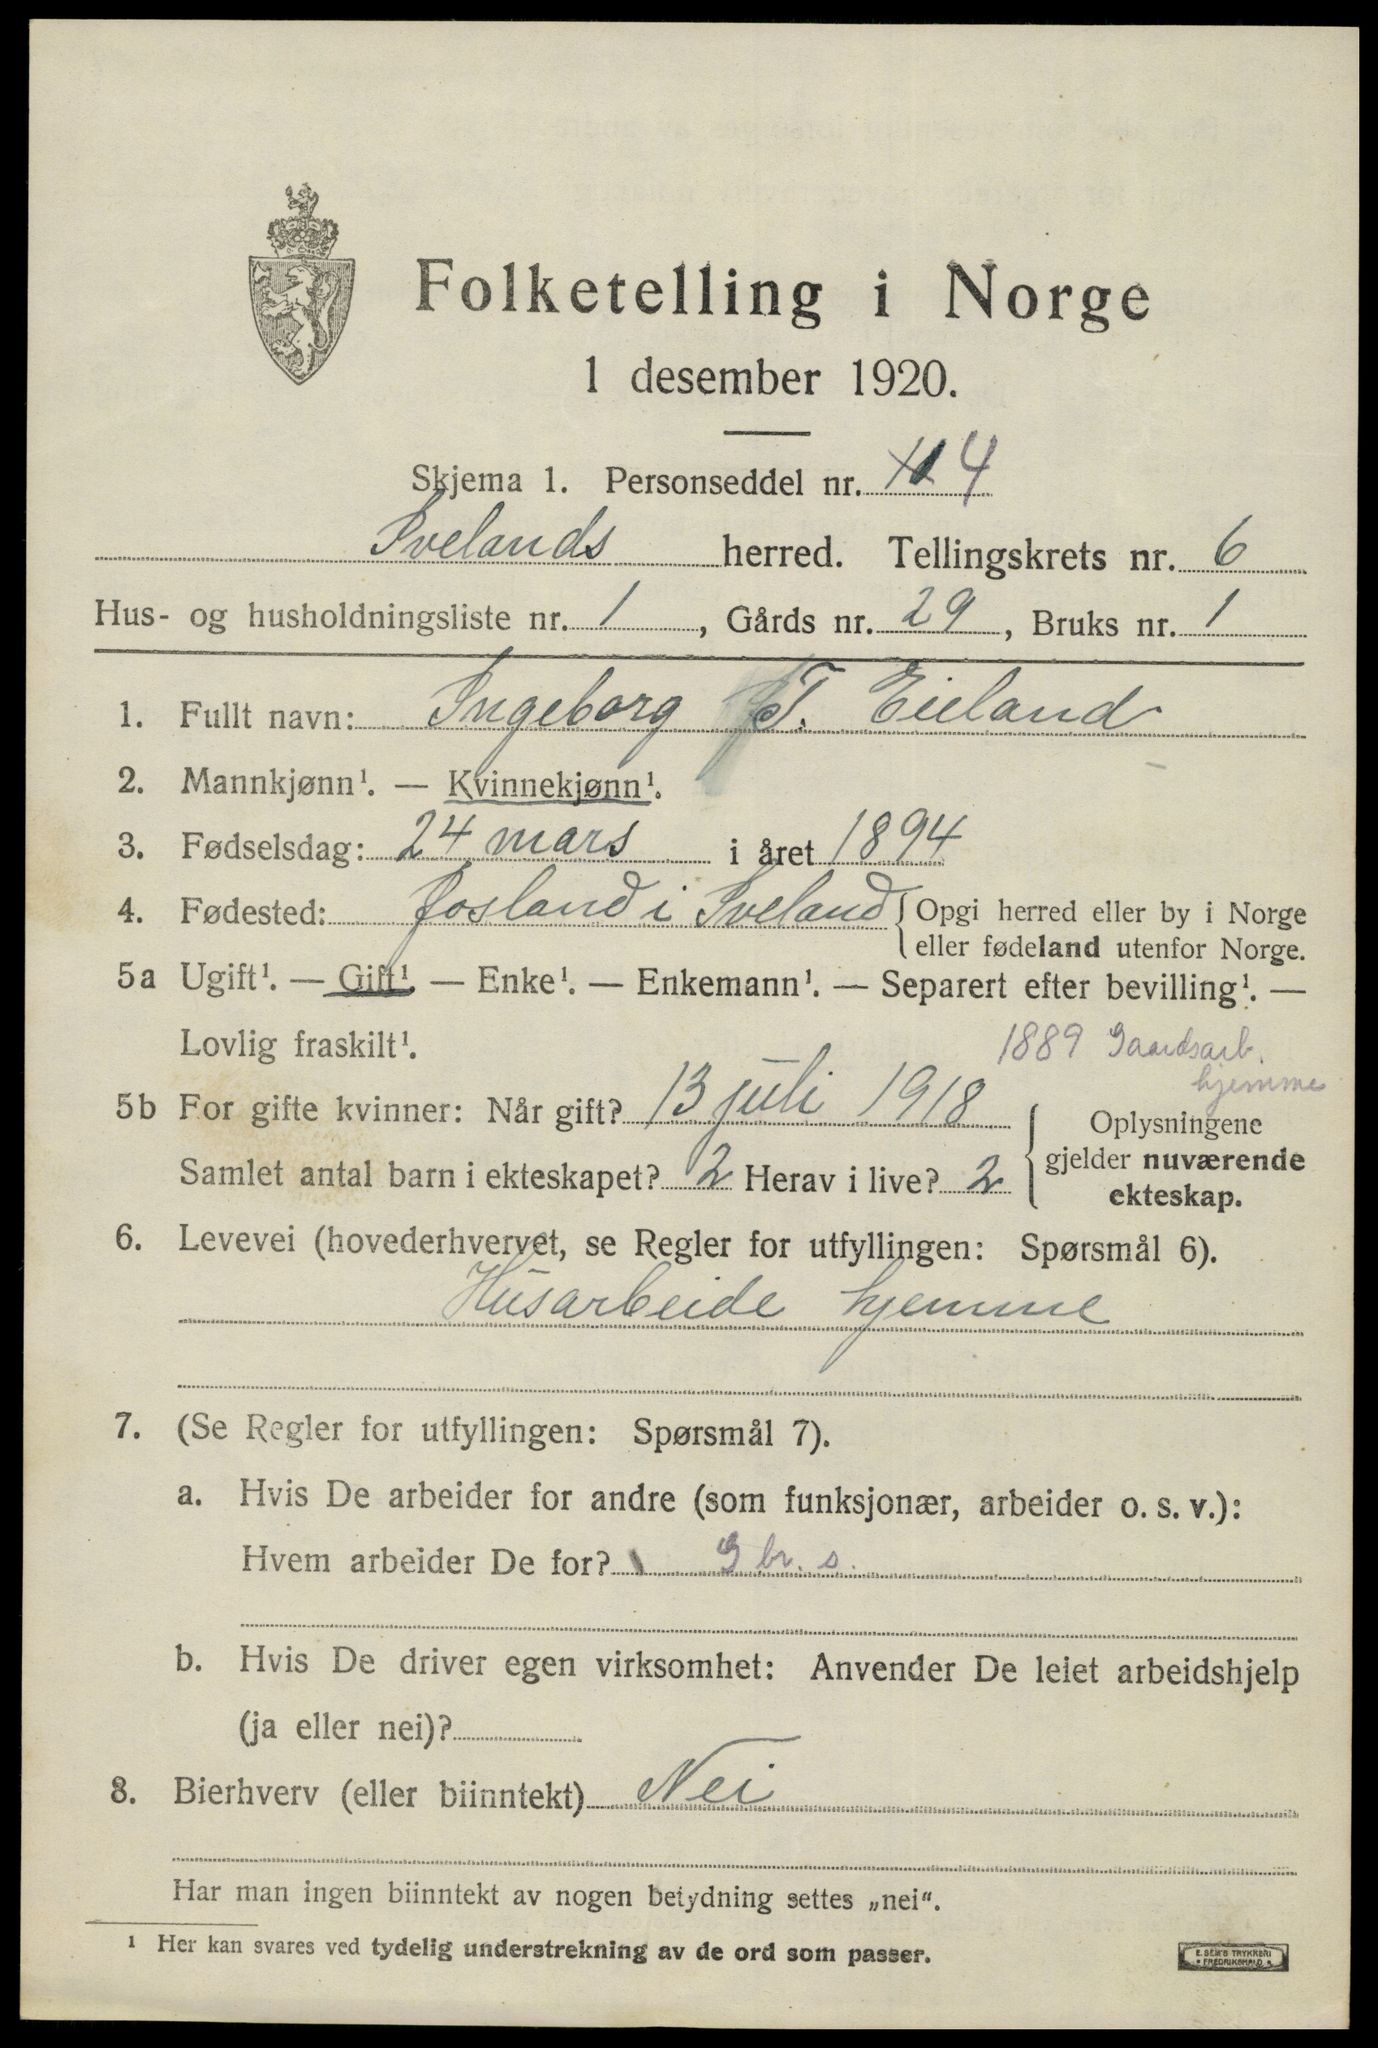 Folketelling i Norge
1 desember 1920.
Skjema 1. Personseddel nr. 4
Ivelands herred. Tellingskrets nr. 6
Hus- og husholdningsliste nr. 1, Gårds nr. 29, Bruks nr. 1
1. Fullt navn: Ingeborg T. Eieland
2. Mannkjønn¹. — Kvinnekjønn¹.
3. Fødselsdag: 24 mars i året 1894
4. Fødested: Josland i Iveland { Opgi herred eller by i Norge
eller fødeland utenfor Norge.
5a Ugift¹. — Gift¹. — Enke¹. — Enkemann¹. — Separert efter bevilling¹. —
Lovlig fraskilt¹.
1889 Gaardsarb.
hjemme
5b For gifte kvinner: Når gift? 13 juli 1918
Samlet antal barn i ekteskapet? 2 Herav i live? 2
{ Oplysningene
gjelder nuværende
ekteskap.
6. Levevei (hovederhvervet, se Regler for utfyllingen: Spørsmål 6).
Husarbeide hjemme
7. (Se Regler for utfyllingen: Spørsmål 7).
a. Hvis De arbeider for andre (som funksjonær, arbeider o. s. v.):
Hvem arbeider De for? G br. s.
b. Hvis De driver egen virksomhet: Anvender De leiet arbeidshjelp
(ja eller nei)?
8. Bierhverv (eller biinntekt) Nei
Har man ingen biinntekt av nogen betydning settes „nei“.
¹ Her kan svares ved tydelig understrekning av de ord som passer.
E. SEM'S TRYKKERI
* FREDRIKSHALD *